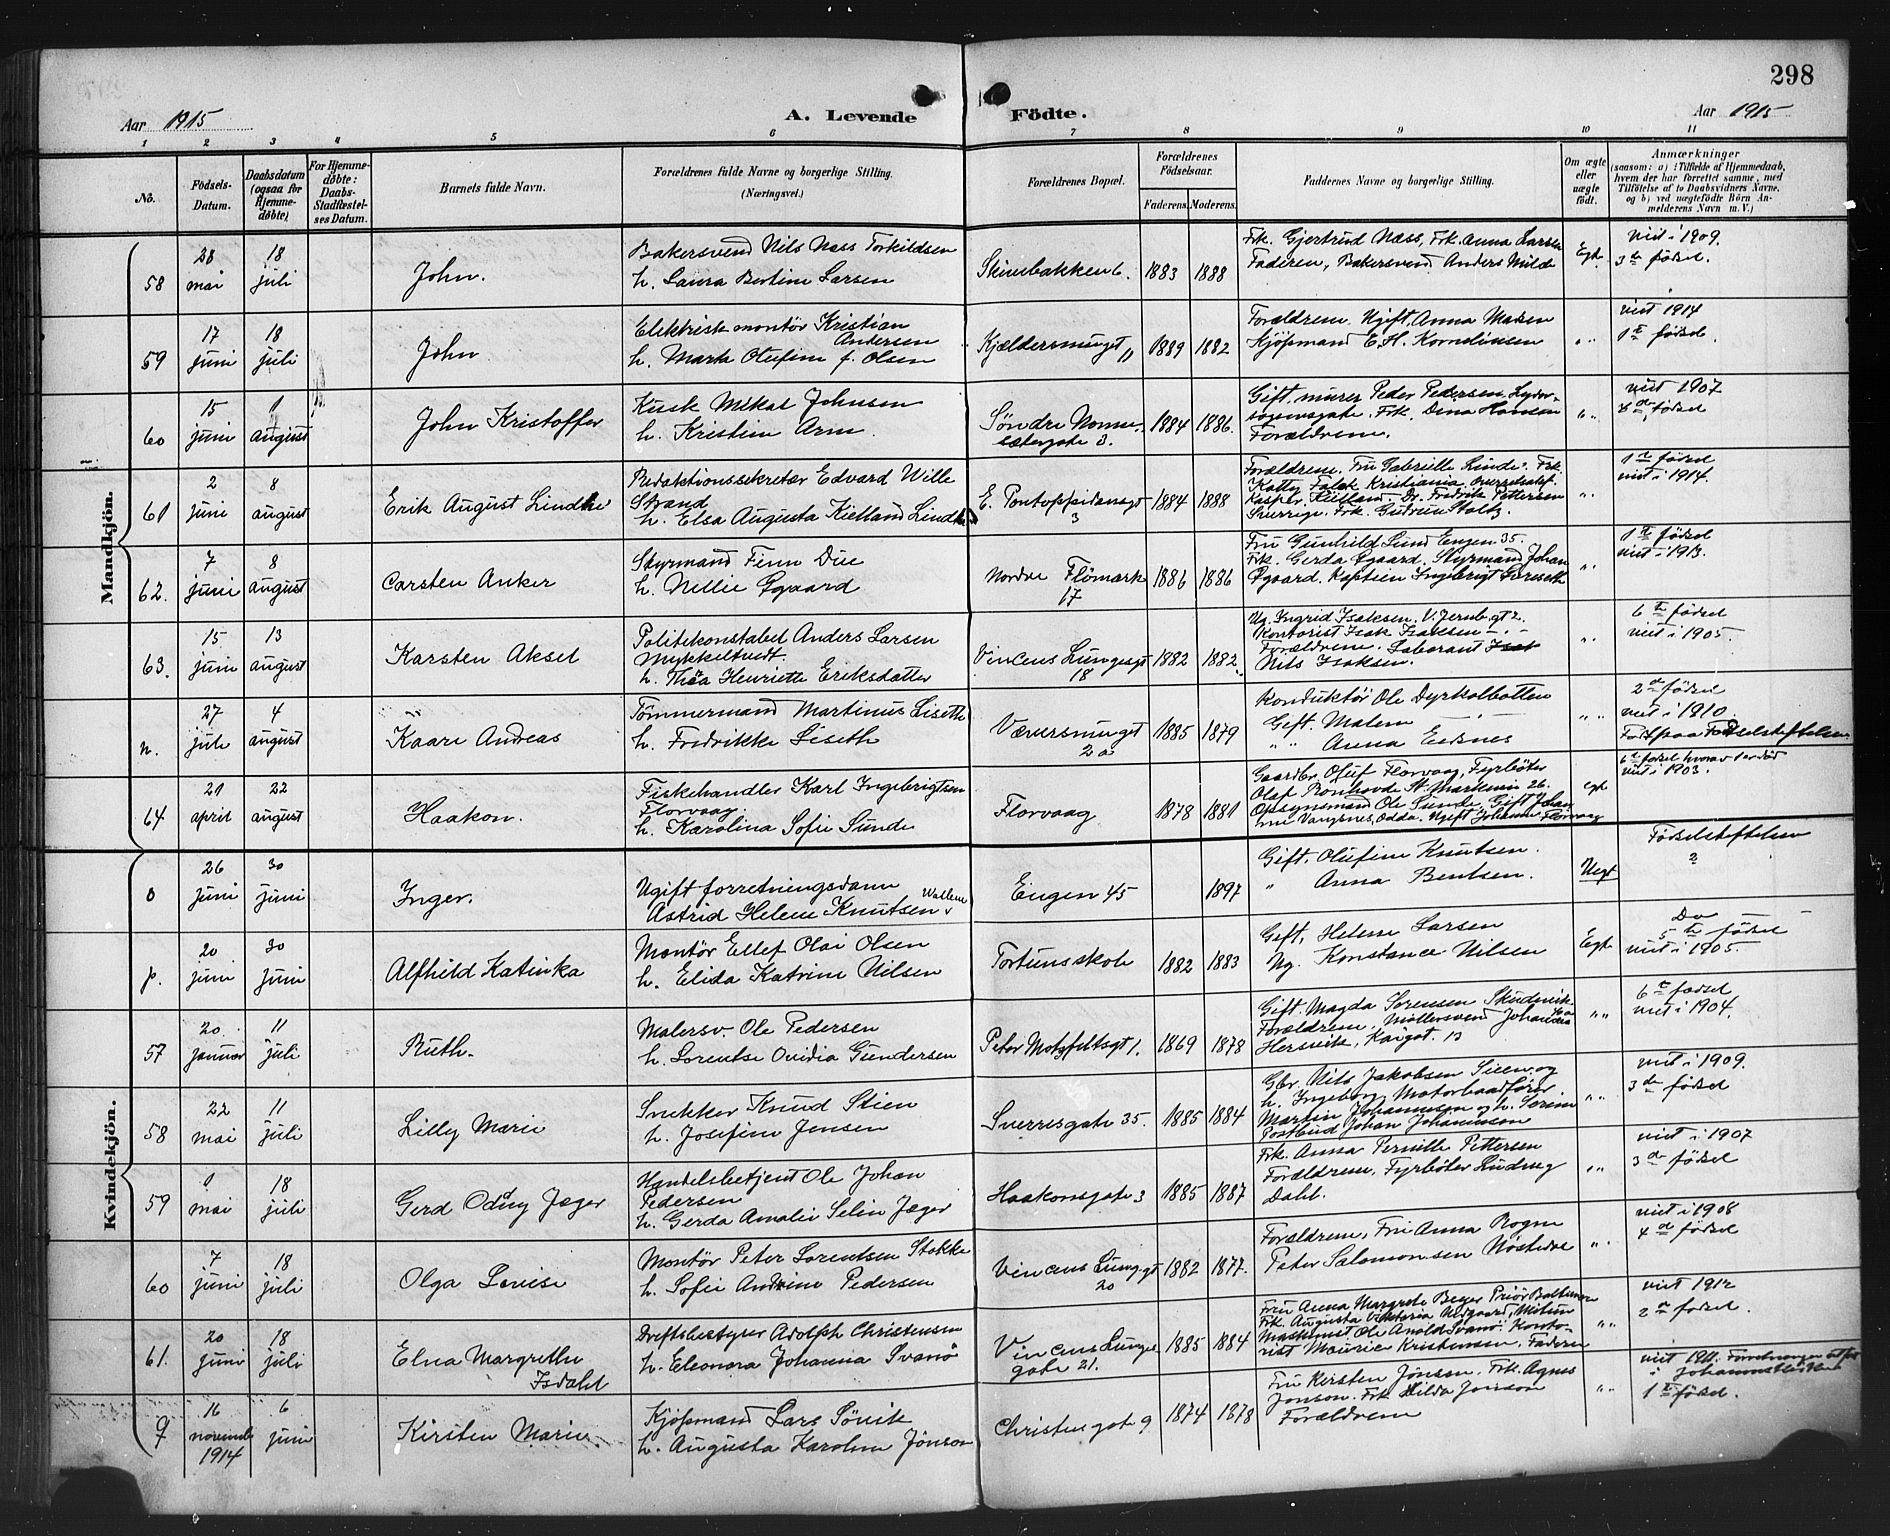 298
Aar 1915
A. Levende Födte.
Aar 1915
1 2 3 4 5 6 7 8 9 10 11
No.
Födsels-Datum.
Daabsdatum (ogsaa for Hjemmedöbte)
For Hjemmedöbte: Daabs-Stadfæstelses Datum.
Barnets fulde Navn.
Forældrenes fulde Navne og borgerlige Stilling. (Næringsvei.)
Forældrenes Bopæl.
Forældrenes Födselsaar.
Faderens. Moderens.
Faddernes Navne og borgerlige Stilling.
Om ægte eller uægte födt.
Anmærkninger
(saasom: a) i Tilfælde af Hjemmedaab, hvem der har forrettet samme, med Tilföielse af to Daabsvidners Navne, og b) ved uægtefödte Börn Anmelderens Navn m. V.)
Mandkjön.
58 28 mai 18 juli John. Bakersvend Nils Næss Torkildsen
h. Laura Bertine Larsen Skinebakken 6. 1883 1888 Frk. Gjertrud Næss, Frk. Anna Larsen
Faderen, Bakersvend Anders Milde Egt. viet i 1909.
3de fødsel.
59 17 juni 18 juli John Elektrisk montör Kristian Andersen
h. Marta Olufine f. Olsen Kjældersmuget 11 1889 1882 Forældrene. Ugift Anna Madsen
Kjöpmand C. H. Kornelinsen " viet 1914
1te fødsel.
60 15 juni 1 august John Kristoffer Kusk Mikal Johnsen
h. Kristine Arm. Söndre Nonnesætergate 3. 1884 1886. Gift. murer Peder Pedersen, Lydersagensgate. Frk. Dina Hansen
Forældrene. " viet 1907
fødsel
61 2 juni 8 august Erik August Lindtke Redaktionssekretær Edvard Wille Strand
h. Elsa Augusta Kielland Lindtke E. Pontoppidansgt 3 1884 1888 Forældrene. Fru Gabrielle Linde. Frk. Katty Falck Kristiania.
Kasper Kielland. Dr. Fredrik Pettersen
Sverrige. Frk. Gudrun Stoltz. " 1te fødsel
viet i 1914.
62. 7 juni 8 august Carsten Anker Styrmand Finn Due
h. Nellie Øgaard Nordre Flömark 17 1886 1886 Fru Gunhild Lund Engen 35.
Frk. Gerda Øgaard. Styrmand Johan
Øgaard. Kaptein Ingebrigt " 1te fødsel
viet i 1913.
63. 15 juni 13 august Karsten Aksel Politikonstabel Anders Larsen
Mykkeltvedt.
h. Thea Henriette Eriksdatter Vincens Lungesgt 18 1882 1882. Ug. Ingrid Isaksen, V. Jernb.gt 2.
Kontorist Isak Isaksen
Forældrene. Laborant Isak
Nils Isaksen. " 6te fødsel
viet i 1905.
n. 27 juli 4 august Kaare Andreas Tömmermand Martinus Liseth
h. Fredrikke Liseth Værversmuget 2a 1885 1879 Konduktör Ole Dyrkolbotten
Gift. Malene
" Anna Eidsnes " 2de fødsel
viet i 1910.
Født paa Fødselstiftelsen
64 21 april 22 august Haakon. Fiskehandler Karl Ingebrigtsen
Florvaag.
h. Karolina Sofie Sunde Florvaag 1878 1881 Gaardbr. Oluf Florvaag, Fyrböter
Olaf Ronhovde St. Markevei 26.
Opsynsmand Ole Sunde, Gift Johanne Vangsnes, Odda. Ugift Johanne Florvaag egt 6te fødsel hvorav 1 er død
viet i 1903.
Kvindekjön.
o 26 juni 30 juni Inger. Ugift forretningsdame Wallem
Astrid Helene Knutsen Engen 45 1897 Gift. Olufine Knutsen.
" Anna Bentsen. Uegt Fødselstiftelsen
2
p. 20 juni 30 juni Alfhild Katinka Montör Ellef Olai Olsen
h. Elida Katrine Nilsen Tortunsskole 1882 1883 Gift. Helene Larsen
Ug. Konstance Nilsen Egt Do
5te fødsel
viet i 1905.
57 20. januar 11 juli Ruth. Malersv. Ole Pedersen
h. Lorentse Ovidia Gundersen Peter Motzfeltsgt 1. 1869 1878 Gift. Magda Sørensen
Forældrene, Möllersvend Johannes
Hersvik, Kaigat. 13 " 6te fødsel
viet i 1904.
58 22 mai 11 juli Lilly Marie Snekker Knud Stien
h. Josefine Jensen Sverresgate 35. 1885 1884 Gbr. Nils Jakobsen Steen og
h. Ingeborg, Motorbaadfører
Martin Johannesen og h. Serine
Postbud Johan Johannesen " viet i 1909.
3de fødsel
59 1 mai 18 juli Gerd Odny Jæger Handelsbetjent Ole Johan
Pedersen
h. Gerda Amalie Selin Jæger Haakonsgate 3 1885 1887 Frk. Anna Pernille Pettersen
Forældrene, Fyrböter Ludvig
Dahl. " viet i 1907
3de fødsel
60 7 juni 18 juli Olga Louise Montör Peter Lorentsen Stokke
h. Sofie Andrine Pedersen Vincens Lung.gt 20 1882 1877. Forældrene, Fru Anna Rogne
Peter Salomonsen Nöstedre " viet i 1908
4de fødsel
61. 20 juni 18 juli Elna Margrethe Isdahl Driftsbestyrer Adolph Christensen
h. Eleonora Johanna Svanö Vincens Lungesgate 21. 1885 1884 Fru Anna Margrete Beyer
Frk. Augusta Viktoria
Maskinist Ole Arnold Svanö. Kontorist Maurice Kristensen. Faderen " viet 1912
2de fødsel.
q 16 november 1914 6 juni Kirsten Marie Kjöpmand Lars Sövik
h. Augusta Karoline Jönson Christiesgate 9 1874 1878 Fru Kersten Jönson. Frk. Agnes
Jonson. Frk Hilda Jonson
Forældrene " viet 1911.
i Johanneskirken
1te fødsel.